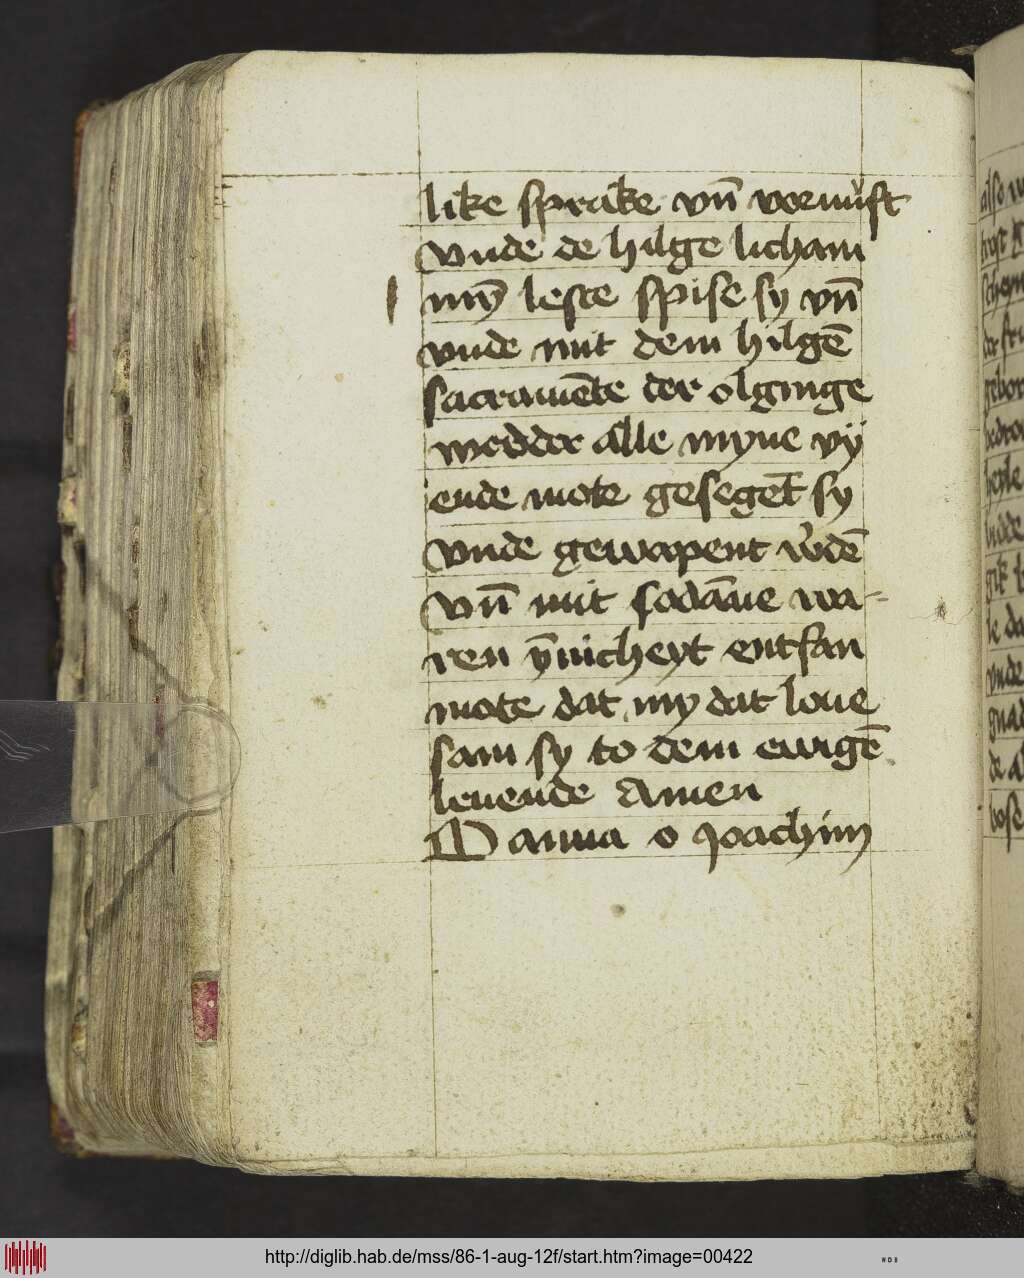 like sprake vn̄ vornuft
vnde de hilge licham
mȳ leste spise sy vn̄
vnde mit dem hilgē
sacramēte der olginge
wedder alle myne vÿ
ende mote geseget̄ sy
vnde gewapent w̓dē
vn̄ mit sodāne wa-
ren ȳnicheyt entfan
mote dat my dat loue
sam sy to dem ewigē
leuende Amen
O anna o Joachim
http://diglib.hab.de/mss/86-1-aug-12f/start.htm?image=00422